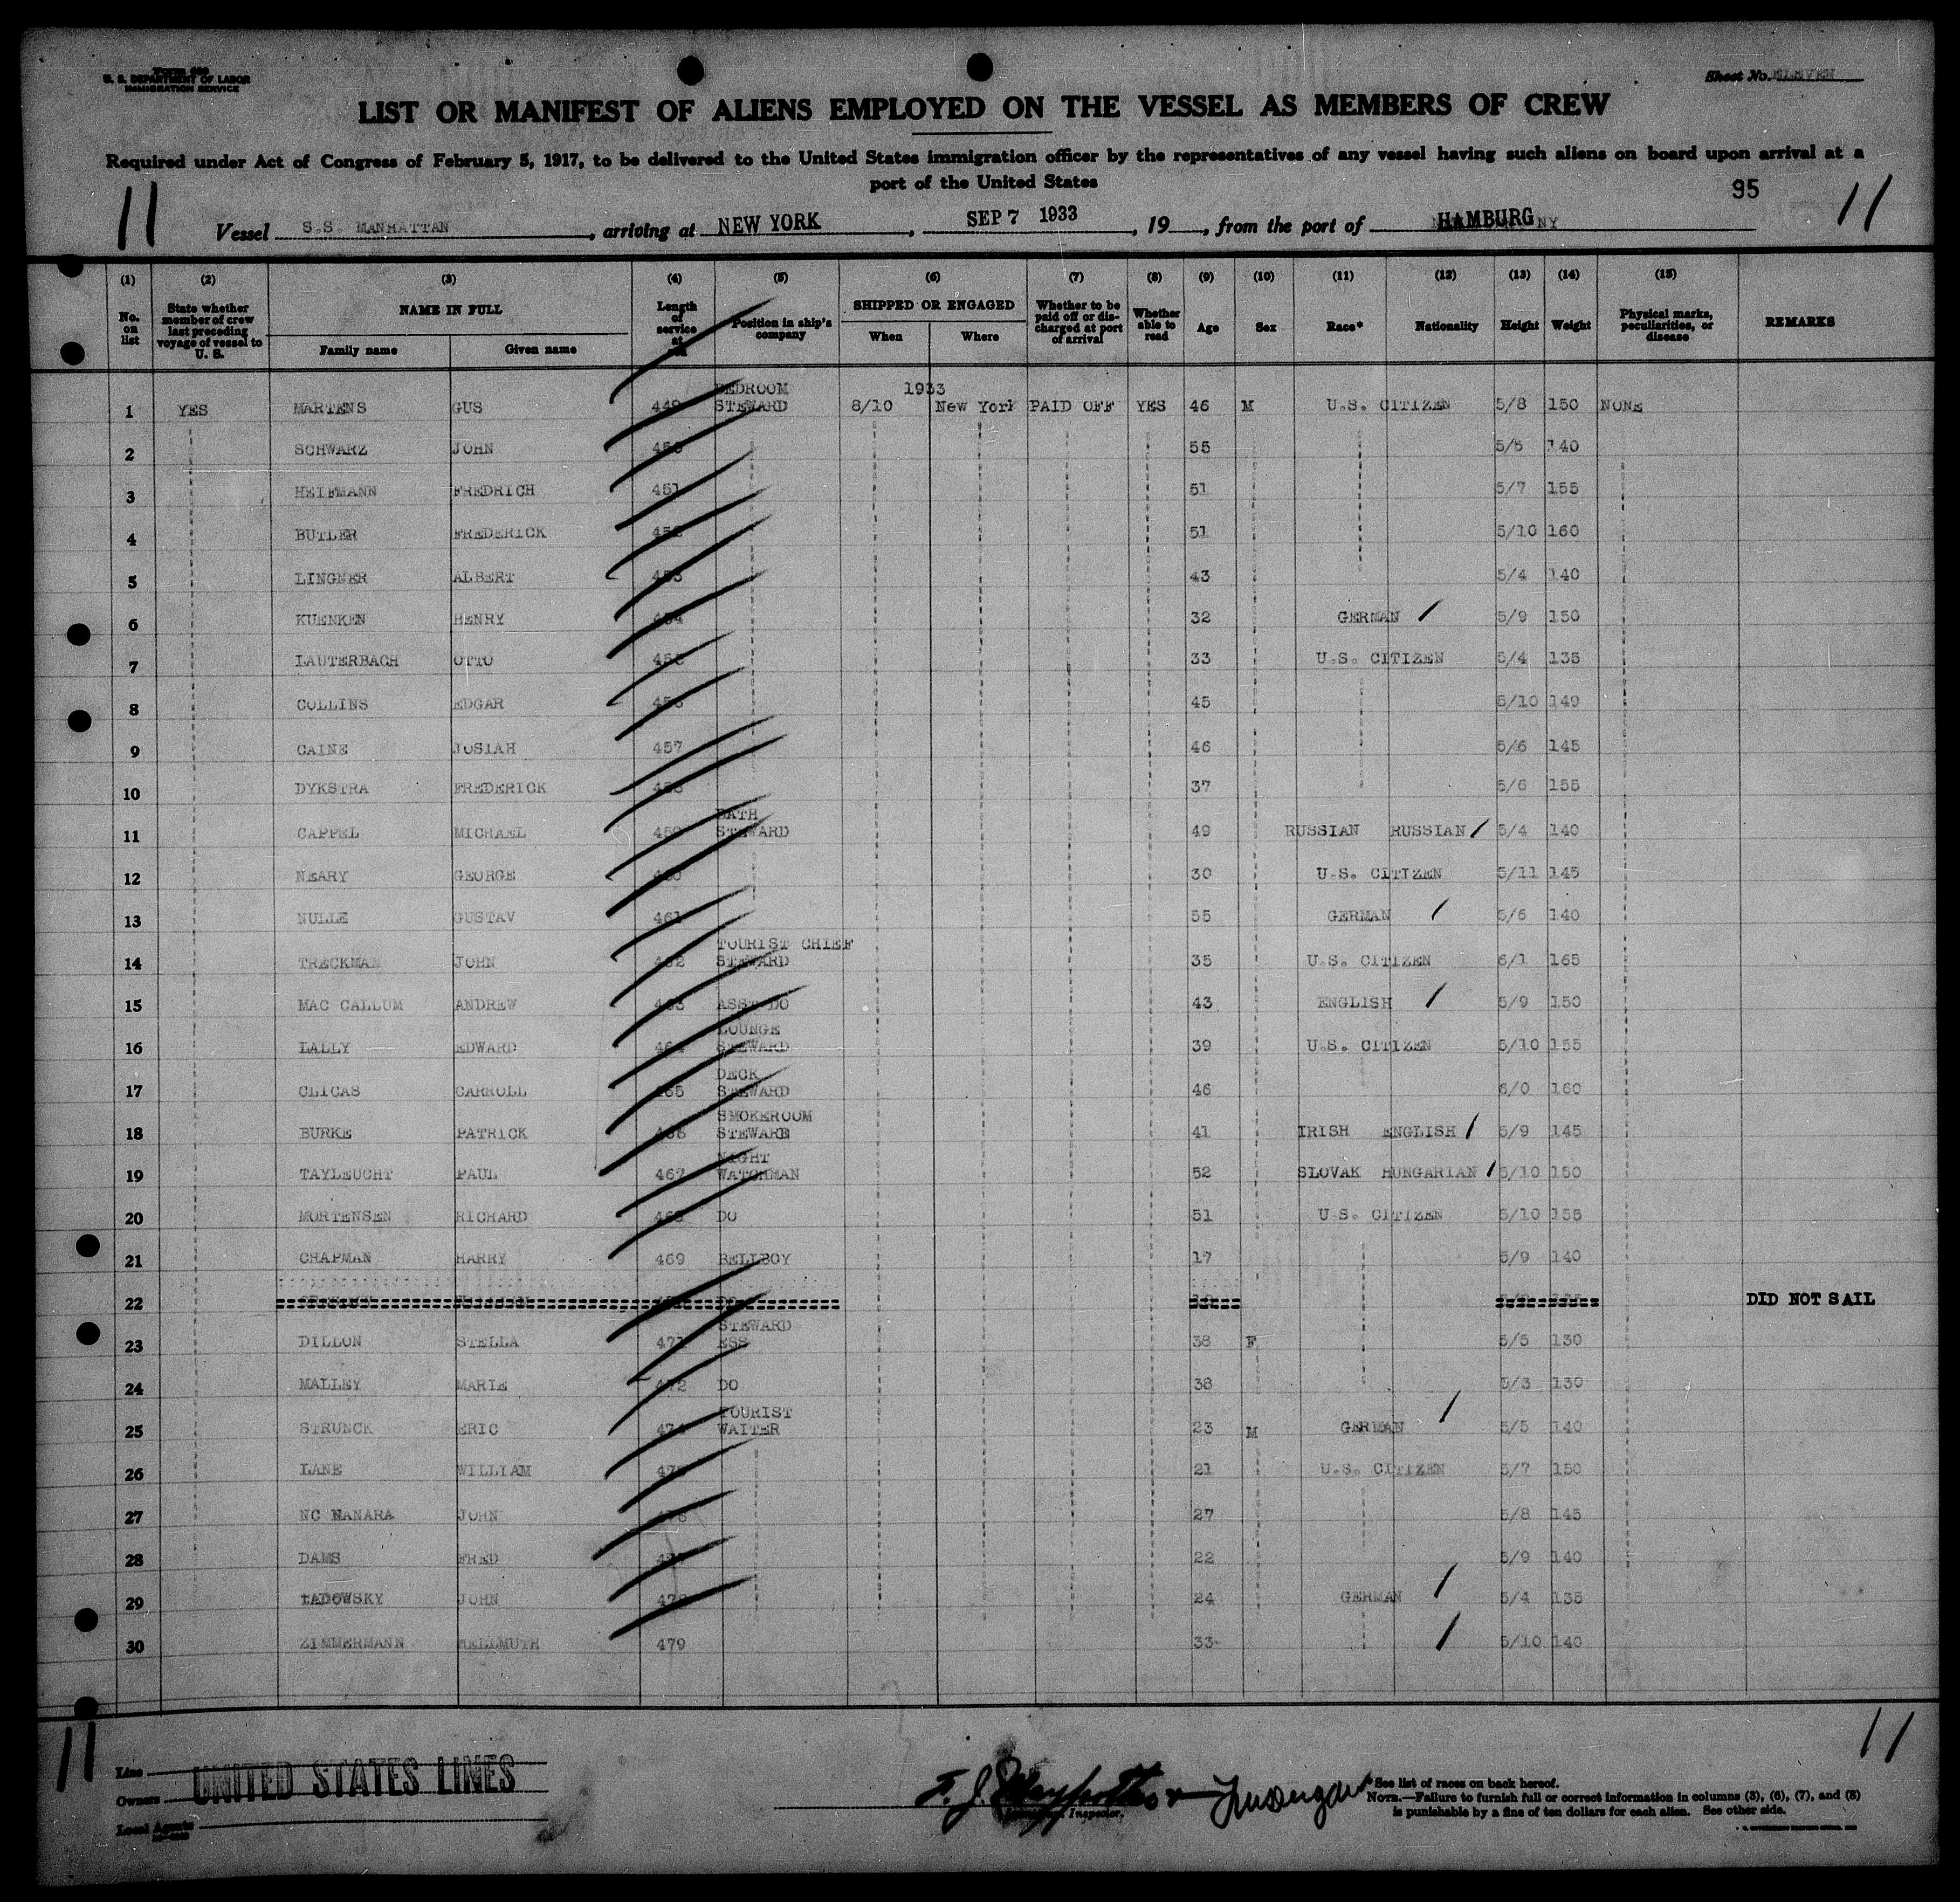 Form 689
U. S. DEPARTMENT OF LABOR
IMMIGRATION SERVICE
Sheet No. ELEVEN
LIST OR MANIFEST OF ALIENS EMPLOYED ON THE VESSEL AS MEMBERS OF CREW
Required under Act of Congress of February 5, 1917, to be delivered to the United States immigration officer by the representatives of any vessel having such aliens on board upon arrival at a
port of the United States
95
11 11
Vessel S.S. MANHATTAN, arriving at NEW YORK, SEP 7 1933, 19, from the port of HAMBURG
(1) (2) (3) (4) (5) (6) (7) (8) (9) (10) (11) (12) (13) (14) (15)
No. on list
State whether member of crew last preceding voyage of vessel to U. S.
NAME IN FULL
Family name Given name
Length of service at
Position in ship's company
SHIPPED OR ENGAGED
When Where
Whether to be paid off or discharged at port of arrival
Whether able to read
Age Sex Race* Nationality Height Weight
Physical marks, peculiarities, or disease
REMARKS
BEDROOM 1933
1 YES MARTENS GUS 449 STEWARD 8/10 New York PAID OFF YES 46 M U.S. CITIZEN 5/8 150 NONE
2 SCHWARZ JOHN 450 55 5/5 140
3 HEIFMANN FREDRICH 451 51 5/7 155
4 BUTLER FREDERICK 452 51 5/10 160
5 LINGNER ALBERT 453 43 5/4 140
6 KUENKEN HENRY 454 32 GERMAN 5/9 150
7 LAUTERBACH OTTO 455 33 U.S. CITIZEN 5/4 135
8 COLLINS EDGAR 456 45 5/10 149
9 CAINE JOSIAH 457 46 5/6 145
10 DYKSTRA FREDERICK 458 37 5/6 155
BATH
11 CAPPEL MICHAEL 459 STEWARD 49 RUSSIAN RUSSIAN 5/4 140
12 NEARY GEORGE 460 30 U.S. CITIZEN 5/11 145
13 NULLE GUSTAV 461 55 GERMAN 5/6 140
TOURIST CHIEF
14 TRECKMAN JOHN 462 STEWARD 35 U.S. CITIZEN 6/1 165
15 MAC CALLUM ANDREW 463 ASST DO 43 ENGLISH 5/9 150
LOUNGE
16 LALLY EDWARD 464 STEWARD 39 U.S. CITIZEN 5/10 155
DECK
17 CLICAS CARROLL 465 STEWARD 46 6/0 160
SMOKEROOM
18 BURKE PATRICK 466 STEWARD 41 IRISH ENGLISH 5/9 145
NIGHT
19 TAYLEUCHT PAUL 467 WATCHMAN 52 SLOVAK HUNGARIAN 5/10 150
20 MORTENSEN RICHARD 468 DO 51 U.S. CITIZEN 5/10 155
21 CHAPMAN HARRY 469 BELLBOY 17 5/9 140
22 DID NOT SAIL
STEWARD
23 DILLON STELLA 471 ESS 38 F 5/5 130
24 MALLEY MARIE 472 DO 38 5/3 130
TOURIST
25 STRUNCK ERIC 474 WAITER 23 M GERMAN 5/5 140
26 LANE WILLIAM 475 21 U.S. CITIZEN 5/7 150
27 NC NANARA JOHN 476 27 5/8 145
28 DAMS FRED 477 22 5/9 140
29 tADOWSKY JOHN 478 24 GERMAN 5/4 135
30 ZIMMERMANN HELLMUTH 479 33 5/10 140
11 11
Line
Owners UNITED STATES LINES
Local Agents
Inspector.
*See list of races on back hereof.
NOTE.—Failure to furnish full or correct information in columns (3), (6), (7), and (8)
is punishable by a fine of ten dollars for each alien. See other side.